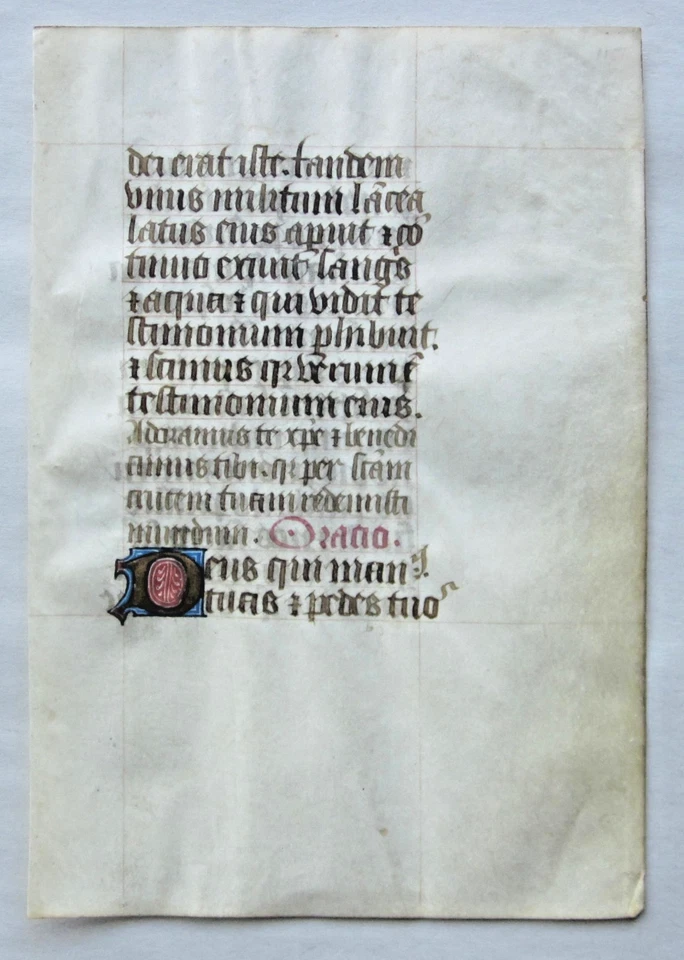 dei erat iste. tandem
vnus militum lācea
latus eius apuit ⁊ cō
tinuo exiuit sangs
⁊ aqua ⁊ qui vidit te
stimonium phibuit.
⁊ scimus qꝛ verum ē
testimonium eius.
Adoramus te xpē ⁊ benedi
cimus tibi. qꝛ per scām
crucem tuam redemisti
mundum. Oracio.
Deus qui man⁹
tuas ⁊ pedes tuos